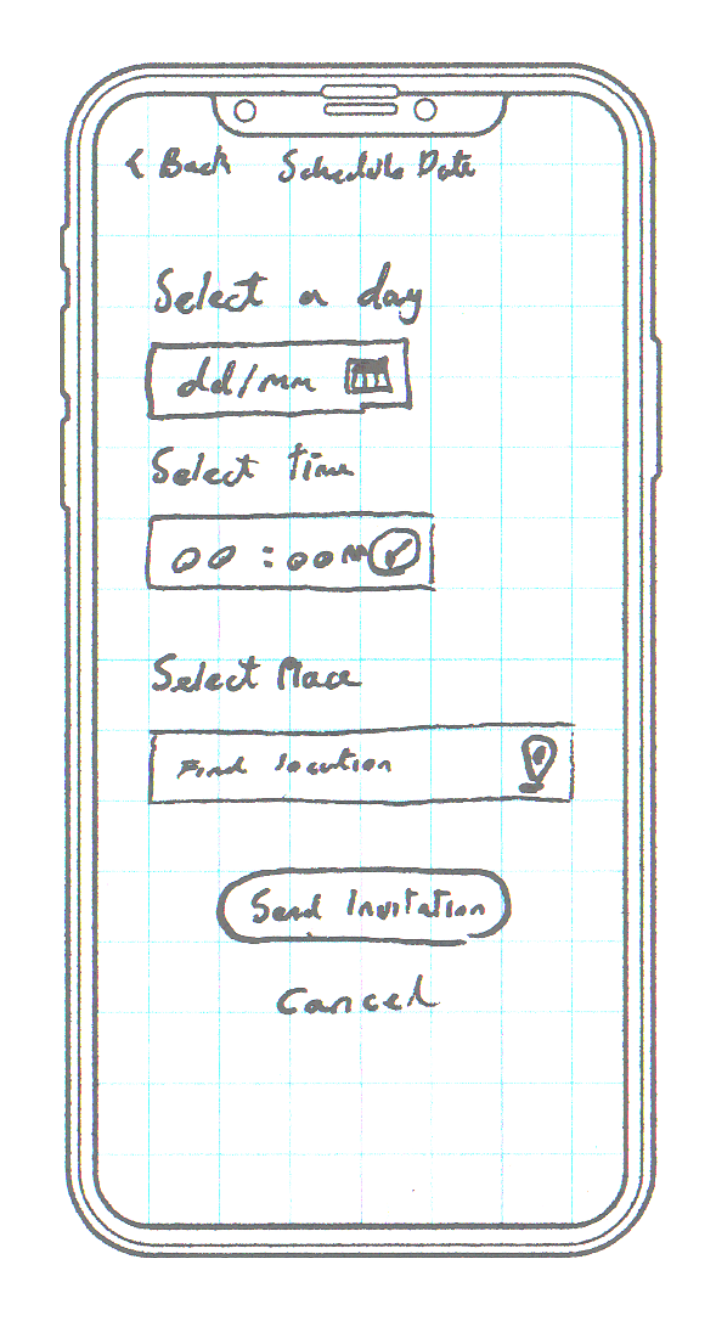 < Back Schedule Date
Select a day
dd/mm
Select time
00:00
Select Place
Find location
Send Invitation
Cancel